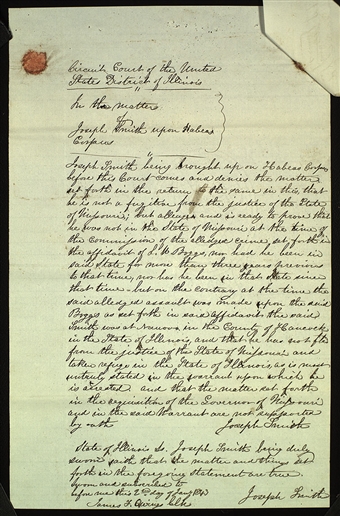 Circuit Court of the United
State District of Illinois
In the matter
of
Joseph Smith upon Habeas
Corpus
Joseph Smith being brought up on Habeas Corpus
before this Court comes and denies the matter
set forth in the return to the same in this, that
he is not a fugitive from the justice of the State
of Missouri; but alleges and is ready to prove that
he was not in the State of Missouri at the time of
the Commission of the alleged crime set forth in
the affidavit of L. W. Boggs, nor had he been in
said State for more than three years previous
to that time, nor has he been in that State since
that time - but on the contrary at the time the
said alleged assault was made upon the said
Boggs as set forth in said affidavit the said
Smith was at Nauvoo in the County of Hancock
in the State of Illinois, and that he has not fled
from the justice of the State of Missouri and
taken refuge in the State of Illinois, as is most
untruly stated in the warrant upon which he
is arrested and that the matter set forth
in the requisition of the Governor of Missouri
and in the said Warrant are not supported
by oath
Joseph Smith
State of Illinois Ss. Joseph Smith being duly
sworn saith that the matter and things set
forth in the foregoing statement are true
sworn and subscribed to
before me this 2d day of Jany
Joseph Smith
James F. Owings Clk